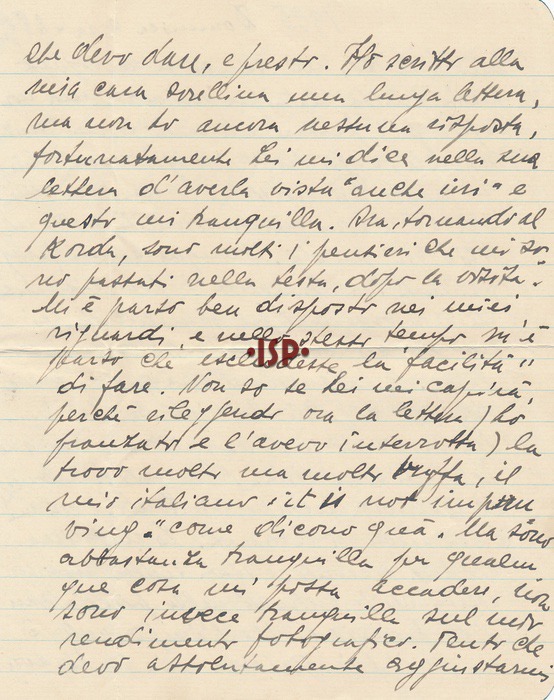 che devo dare, e presto. Ho scritto alla
mia cara sorellina una lunga lettera,
ma non ho ancora nessuna risposta,
fortunatamente Lei mi dice nella sua
lettera d'averla vista "anche ieri" e
questo mi tranquilla. Ora, tornando al
Korda, sono molti i pensieri che mi so-
no passati nella testa, dopo la visita.
Mi è parso ben disposto nei miei
riguardi, e nello stesso tempo m'è
parso che escludesse la "facilità"
di fare. Non so se Lei mi capirà,
perchè rileggendo ora la lettera (ho
pranzato e l'avevo interrotta) la
trovo molto ma molto buffa, il
mio italiano "it is not impro
ving" come dicono quà. Ma sono
abbastanza tranquilla per qualun
que cosa mi possa accadere, non
sono invece tranquilla sul mio
rendimento fotografico. Tanto che
devo assolutamente aggiustarmi
·ISP·